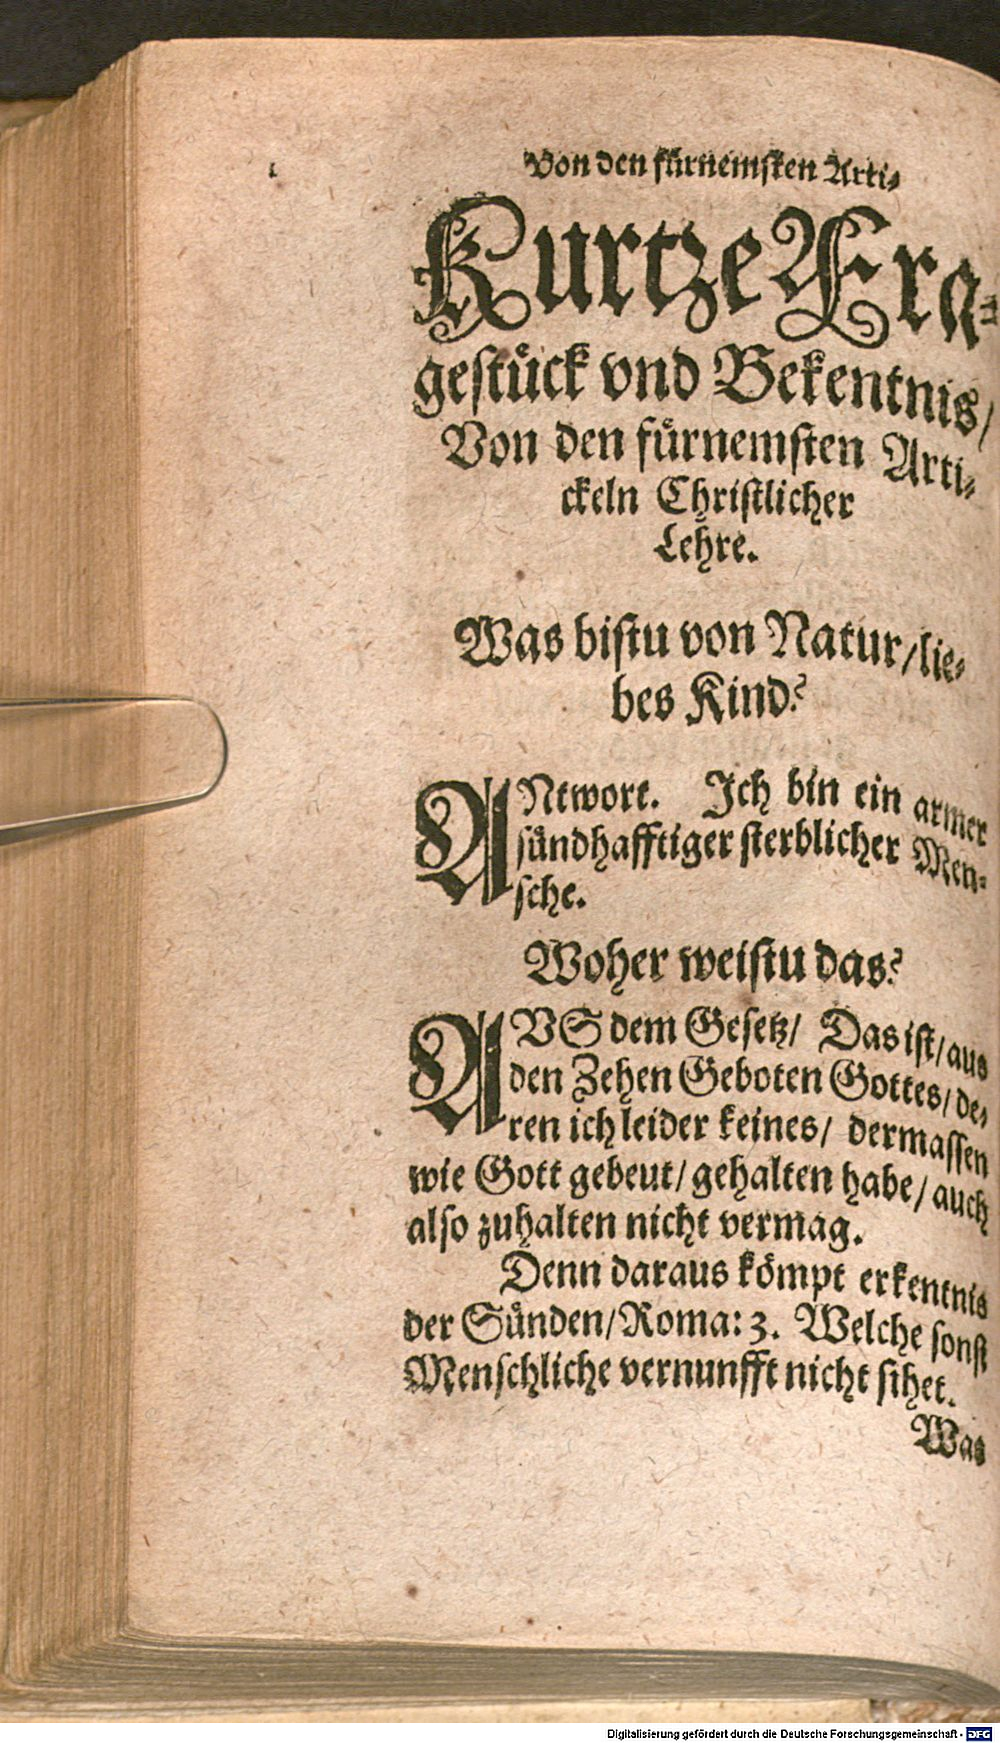 Von den fürnemſten Arti⸗
Kurtze Fra⸗
geſtuͤck vnd Bekentnis/
Von den fuͤrnemſten Arti⸗
ckeln Chriſtlicher
Lehre.
Was biſtu von Natur/lie⸗
bes Kind?
ANtwort. Ich bin ein armer
ſuͤndhafftiger ſterblicher Men⸗
ſche.
Woher weiſtu das?
AVS dem Geſetz/ Das iſt/aus
den Zehen Geboten Gottes/de⸗
ren ich leider keines/ dermaſſen
wie Gott gebeut/gehalten habe/auch
alſo zuhalten nicht vermag.
Denn daraus koͤmpt erkentnis
der Suͤnden/Roma: 3. Welche ſonſt
Menſchliche vernunfft nicht ſihet.
Was
Digitalisierung gefördert durch die Deutsche Forschungsgemeinschaft - DFG